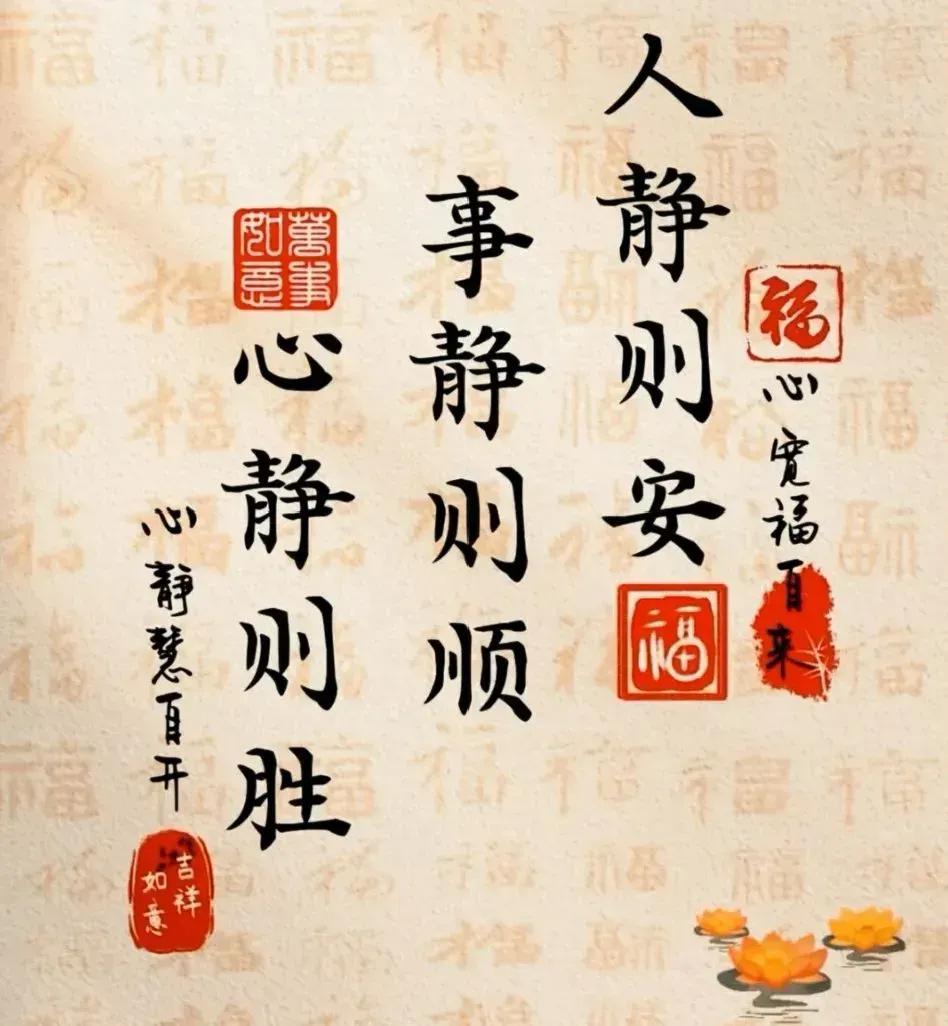 福
心宽福自来
人静则安
福
事静则顺
萬事
如意
心静则胜
心静慧自开
吉祥
如意